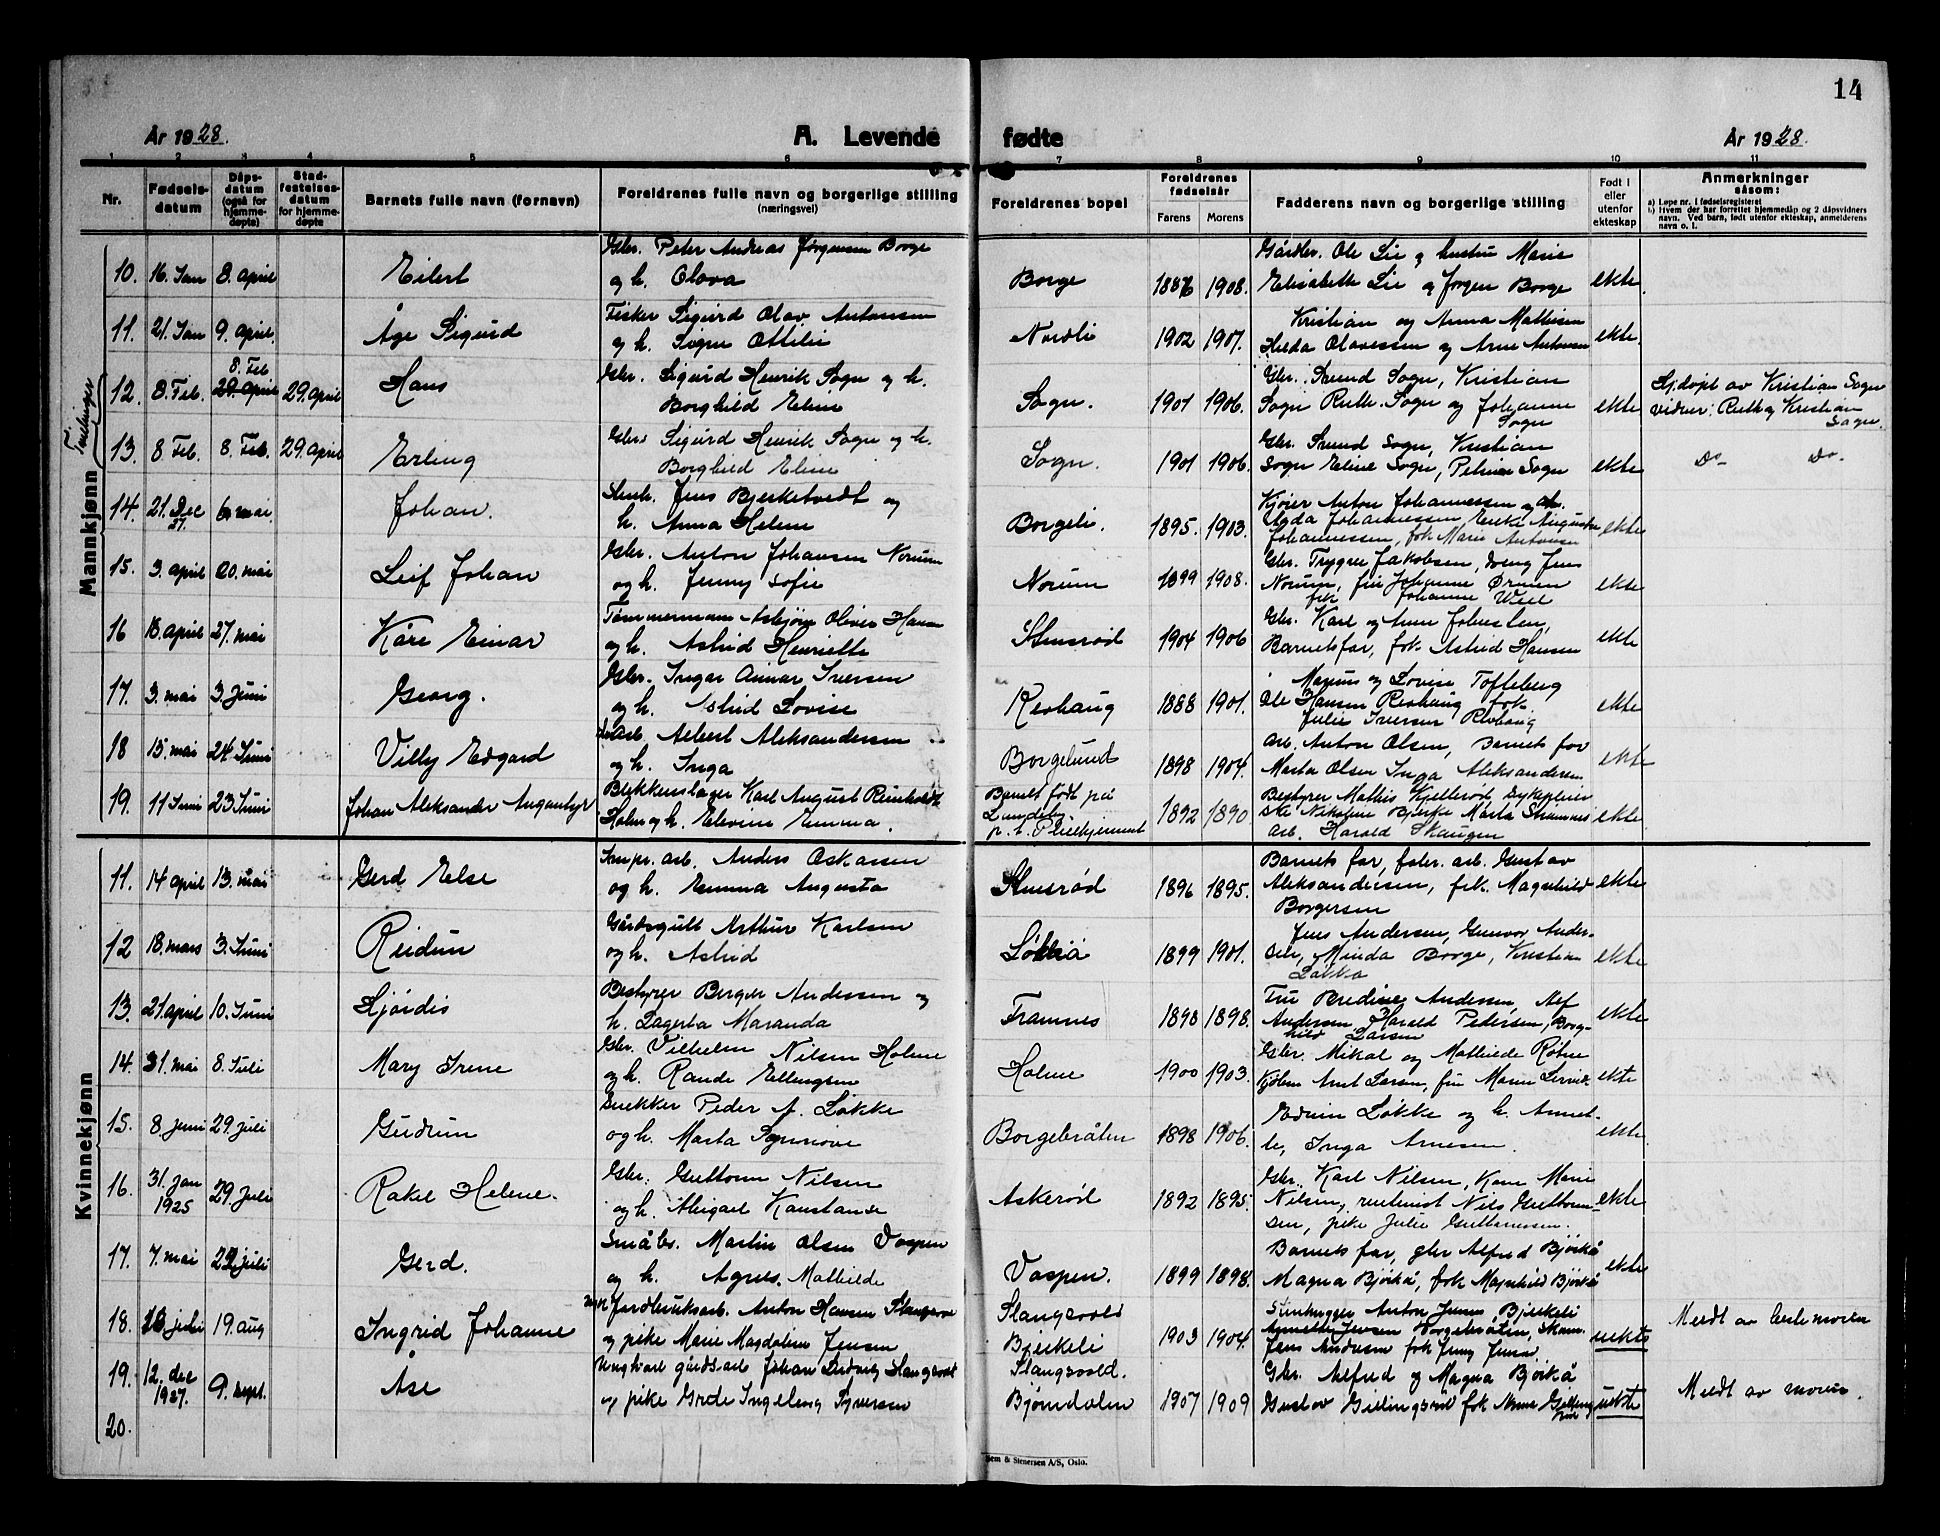 14
År 1928.
A. Levende fødte
År 1928.
1 2 3 4 5 6 7 8 9 10 11
Nr.
Fødselsdatum
Dåpsdatum (også for hjemmedøpte)
Stadfestelsesdatum for hjemmedøpte
Barnets fulle navn (fornavn)
Foreldrenes fulle navn og borgerlige stilling
(næringsvei)
Foreldrenes bopel
Foreldrenes fødselsår
Farens Morens
Fadderens navn og borgerlige stilling
Født i eller utenfor ekteskap
Anmerkninger
såsom:
a) Løpe nr. i fødselsregisteret
b) Hvem der har forrettet hjemmedåp og 2 dåpsvidners navn. Ved barn, født utenfor ekteskap, anmelderens navn o. l.
Mannkjønn
10. 16. Jan 8. april Eilert
Gbr. Peter Andreas Jørgensen Borge
og h. Olova
Borge 1886 1908.
Gårdbr. Ole Lie og hustru Marie
Elisabeth Lie og Jørgen Borge
ekte
11. 21. Jan 9. april. Åge Sigurd
Fisker Sigurd Olav Antonsen
og h. Signe Ottilie
Nordli 1902 1907.
Kristian og Anna Mathisen
Hilda Olavessen og Arne Antonsen
ekte
Tvillinger
12. 8. Feb. 8. Feb 29. april 29. april Hans
Gbr. Sigurd Henrik Sogn og h.
Borghild Eline
Sogn. 1901 1906.
Gbr. Svend Sogn, Kristian
Sogn Ruth Sogn og Johanne
Sogn
ekte
Hj.døpt av Kristian Sogn
vidner: Ruth og Kristian
Sogn.
13. 8 Feb. 8. Feb. 29. april Erling
Gbr. Sigurd Henrik Sogn og h.
Borghild Eline
Sogn. 1901 1906.
Gbr. Svend Sogn, Kristian
Sogn Eline Sogn, Petrine Sogn
ekte
Do Do
14. 21. Dec 27. 6 mai. Johan.
Stenh. Jens Bjerketvedt og
h. Anna Helene
Borgeli. 1895. 1903.
Kjører Anton Johannessen og h.
Johannessen, Augusta
Johannessen, frk Marie Antonsen
ekte
15. 3. april 20. mai Leif Johan
Gbr. Anton Johansen Norum
og h. Jenny Sofie
Norum 1899 1908.
Gbr. Trygve Jakobsen, Jens
Norum, fru Johanne
frk Johanne
ekte
16 15. april 27. mai Kåre Einar
Tømmermann Asbjørn Oliver Hansen
og h. Astrid Henriette
Stusrød 1904 1906
Gbr. Karl og Anna Johnsen,
Barnets far, frk. Astrid Hansen
ekte
17. 3. mai 3. Juni Georg.
Gbr. Ingar Iversen
og h. Astrid Lovise
Revhaug 1888 1901.
Magnus og Lovise Tofteberg
Ole Hansen Revhaug frk.
Julie Iversen Revhaug
ekte
18 15. mai 24. Juni Villy Edgard
arb. Albert Aleksandersen
og h. Inga
Borgelund 1898 1904.
Arb. Anton Olsen, Barnets far
Marta Olsen Inga Aleksandersen
ekte
19. 11 Juni 23 Juni Johan Aleksander Angantyr
Blekkenslager Karl August Reinholdt
Holm og h. Elevine Emma.
Barnet født på
Lundeby.
p. t. Pleiehjemmet
1892 1890
Bestyrer Mathis Kjellerød Sykepleier
Nikoline Bjerke Marta Stramnes
arb. Harald Skaugen
ekte
Kvinnekjønn
11. 14 april 13. mai Gerd Else
arb. Anders Oskarsen
og h. Emma Augusta
Stusrød 1896 1895.
Barnets far, fabr. arb. Gustav
Aleksandersen, frk. Magnhild
Borgersen
ekte
12 18. mars 3. Juni Reidun
Gårdsgutt Arthur Karlsen
og h. Astrid
Løkkå 1899 1901.
Jens Andersen, Gunvor Ander-
sen, Minda Borge, Kristian
Løkka
ekte
13. 21. april 10. Juni Hjørdis
Bestyrer Berger Andersen og
h. Lagerta Maranda
Framnes 1898 1898.
Fru Bredine Andersen, Alf
Andersen, Harald Pedersen, Borg-
hild Larsen
ekte
14. 31. mai 8. Juli Mary Irene
Gbr. Vilhelm Nilsen Holme
og h. Rande Ellingsen
Holme 1900 1903.
Gbr. Mikal og Mathilde Røtne
Arnt Larsen, fru Marie
ekte
15. 8. Juni 29. Juli Gudrun
Snekker Peder A. Løkke
og h. Marta Synnøve
Borgebråten 1898 1906.
Edvin Løkke og h. Annet-
te, Inga Arnesen.
ekte
16. 31. Jan 1925 29 Juli Rakel Helene.
Gbr. Guttorm Nilsen
og h. Abigael Konstanse
Askerød 1892 1895.
Gbr. Karl Nilsen, Karen Marie
Nilsen, Nils Guttorm-
sen, pike Julie Guttormsen.
ekte
17. 7. mai 29. juli Gerd.
Småbr. Martin Olsen Vaspen
og h. Agnes Mathilde
Vaspen. 1899 1898.
Barnets far, gbr Alfred Bjørkå
Magna Bjørkå, frk Magnhild Bjørkå
ekte
18. juli 19. aug Ingrid Johanne
Jordbruksarb. Anton Hansen Slangsvold
og pike Marie Magdalene Jensen
Slangsvold
Bjerkeli
1903 1904.
Stenhugger Anton Jensen, Bjerkeli
Annette Jensen Borgebråten,
Jens Andersen frk Jenny Jensen
uekte
Meldt av bestemoren
19. 12. dec 1927. 9. sept. Åse
Ungkarl gårdsarb Johan Ludvig Slangsvold
og pike Grete Ingeborg Syversen
Slangsvold.
Bjørndalen
1907 1909
Gbr. Alfred og Magna Bjørkå
Gustav frk Anna
uekte
Meldt av moren.
20.
Sem & Stenersen A/S, Oslo.